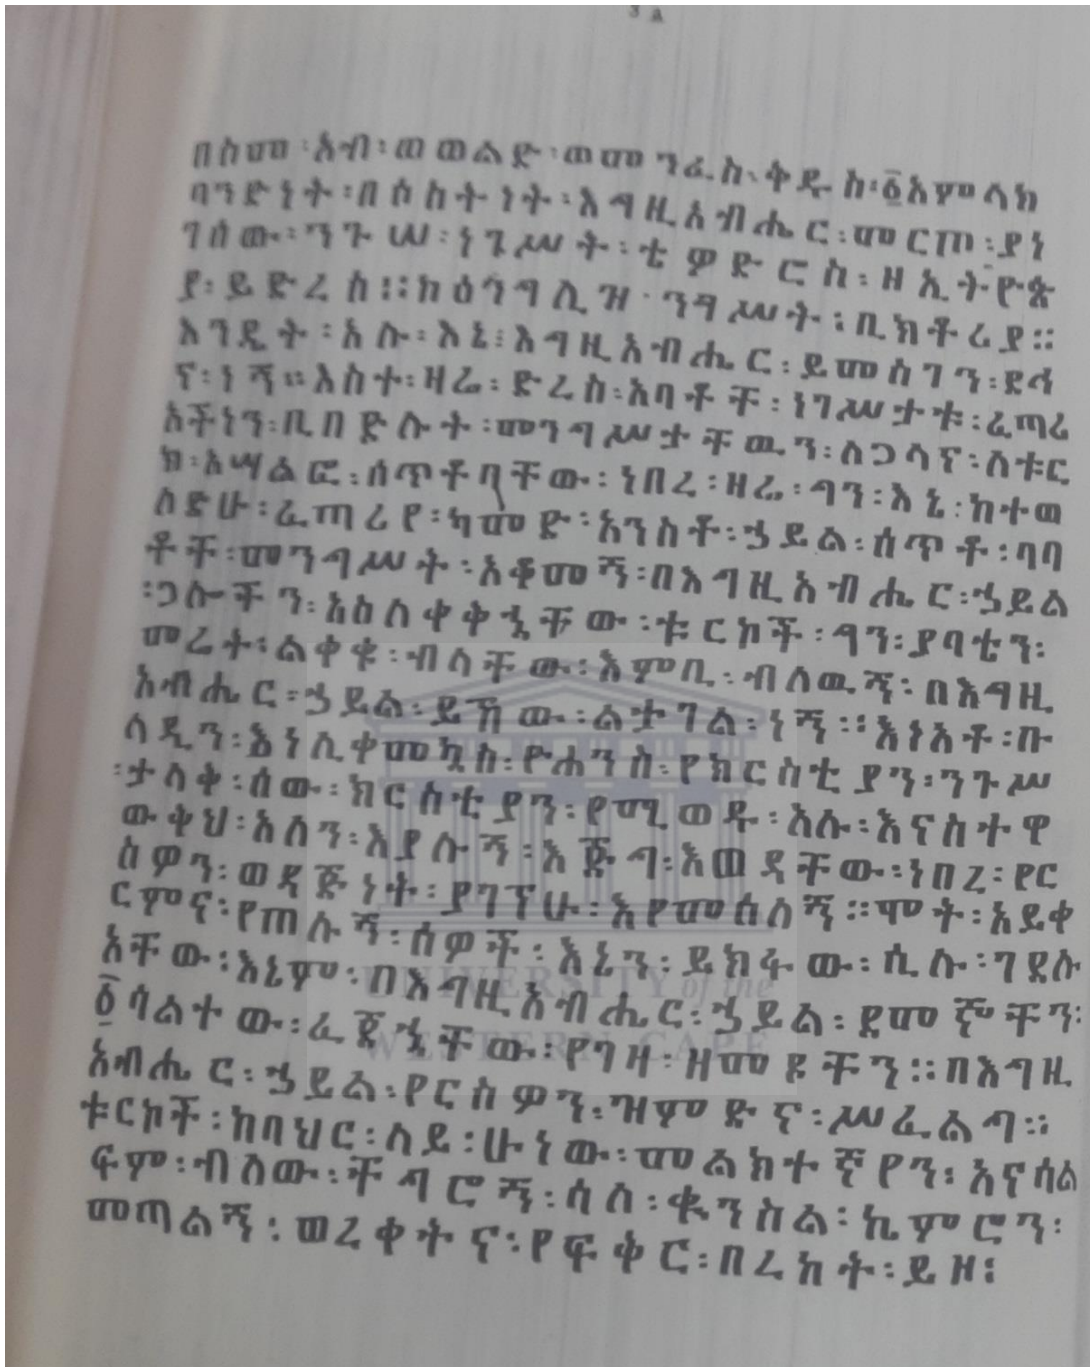 3 a
በስመ፡አብ፡ወወልድ፡ወመንፈስ፡ቅዱስ፡፩አምላክ
ባንድነት፡በሶስትነት፡እግዚአብሔር፡መርጦ፡ያነ
ገሰው፡ንጉሠ፡ነገሥት፡ቴዎድሮስ፡ዘኢትዮጵ
ያ፡ይድረስ፡፡ከዕንግሊዝ፡ንግሥት፡ቢክቶሪያ፡፡
እንዴት፡አሉ፡እኔ፡እግዚአብሔር፡ይመስገን፡ደኅ
ና፡ነኝ፡፡እስተ፡ዛሬ፡ድረስ፡አባቶቸ፡ነገሥታቱ፡ፈጣሪ
አችነን፡ቢበድሉት፡መንግሥታቸዉን፡ለጋላና፡ለቱር
ክ፡አሣልፎ፡ሰጥቶባቸው፡ነበረ፡ዛሬ፡ግን፡እኔ፡ከተወ
ለድሁ፡ፈጣሪየ፡ካመድ፡አንስቶ፡ኃይል፡ሰጥቶ፡ባባ
ቶቸ፡መንግሥት፡አቆመኝ፡በእግዚአብሔር፡ኃይል
፡ጋሎችን፡አስለቀቅኋቸው፡ቱርኮች፡ግን፡ያባቴን፡
መሬት፡ልቀቁ፡ብላቸው፡እምቢ፡ብለዉኝ፡በእግዚ
አብሔር፡ኃይል፡ይኸው፡ልታገል፡ነኝ፡፡እነአቶ፡ቡ
ላዲን፡እነሊቀመኳስ፡ዮሐንስ፡የክርስቲያን፡ንጉሥ
፡ታላቀ፡ሰው፡ክርስቲያን፡የሚወዱ፡አሉ፡እናስተዋ
ውቅህ፡አለን፡እያሉኝ፡እጅግ፡እወዳቸው፡ነበረ፡የር
ስዎን፡ወዳጅነት፡ያገኘሁ፡እየመሰለኝ፡፡ሞት፡አይቀ
ርምና፡የጠሉኝ፡ሰዎች፡እኔን፡ይክፋው፡ሲሉ፡ገደሉ
አቸው፡እኔም፡በእግዚአብሔር፡ኃይል፡ደመኞቸን፡
፩ሳልተው፡ፈጀኋቸው፡የገዛ፡ዘመዶቸን፡፡በእግዚ
አብሔር፡ኃይል፡የርስዎን፡ዝምድና፡ሥፈልግ፡፡
ቱርኮች፡ከባህር፡ላይ፡ሁነው፡መልክተኛየን፡እናሳል
ፍም፡ብለው፡ቸግሮኝ፡ሳለ፡ቈንስል፡ኬምሮን፡
መጣልኝ፡ወረቀትና፡የፍቅር፡በረከት፡ይዞ፡
UNIVERSITY of the
WESTERN CAPE